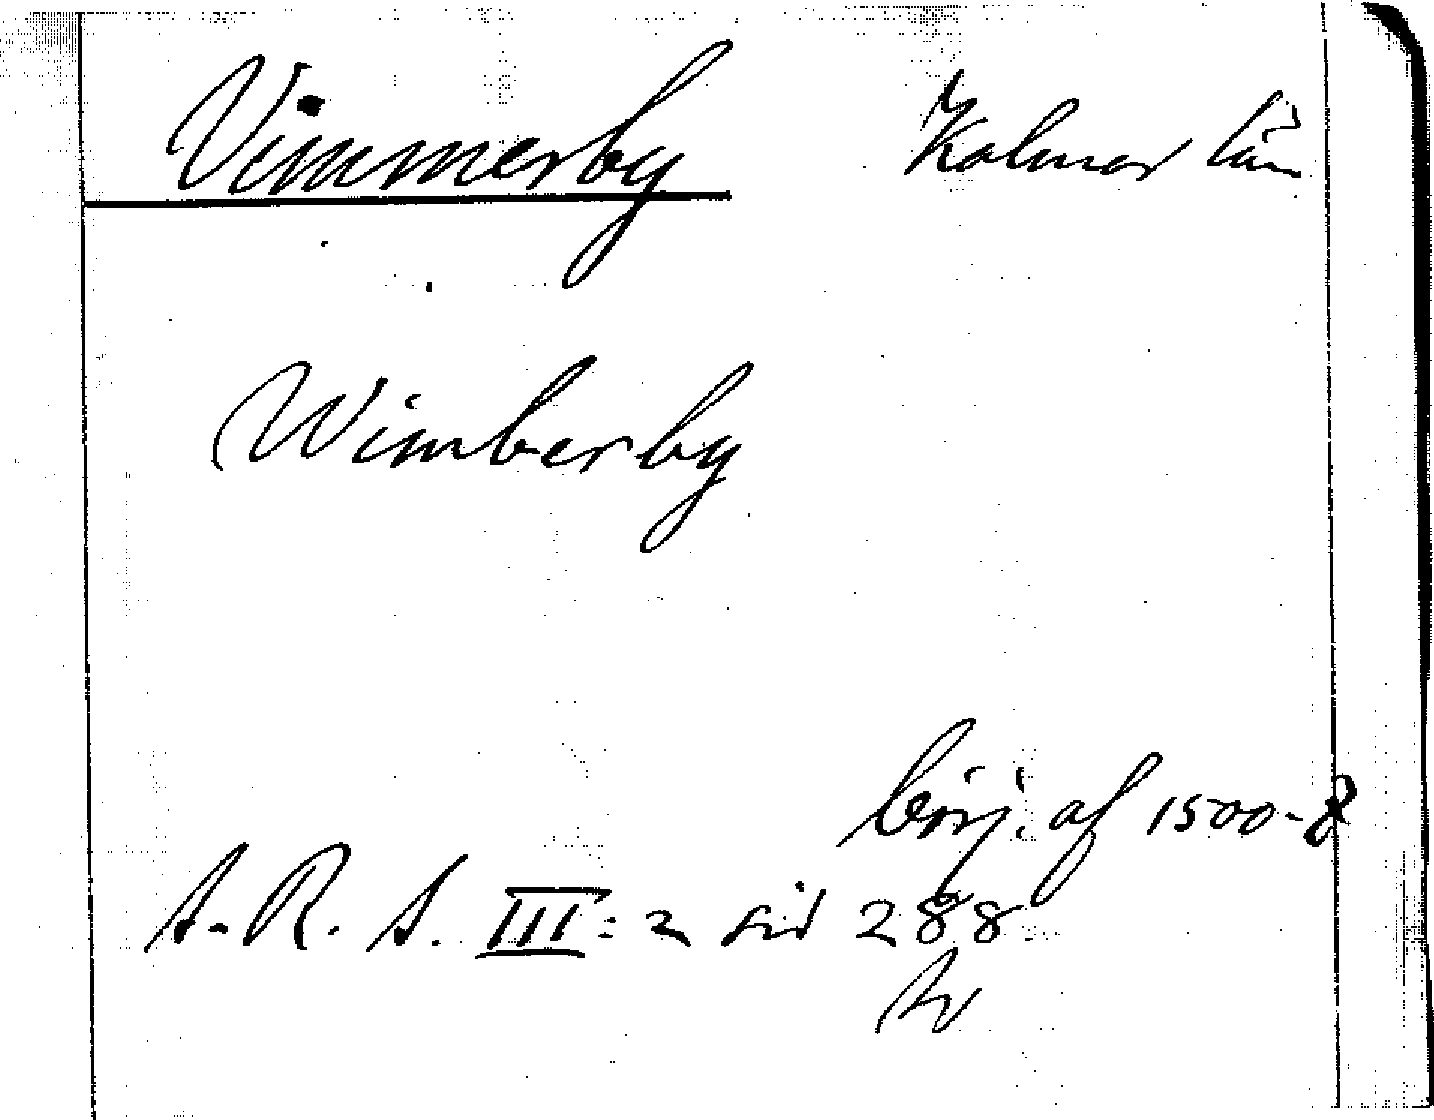 Vimmerby Kalmar län
Wimberby
börj. af 1500-t
S. R. S. III: 2 sid 288